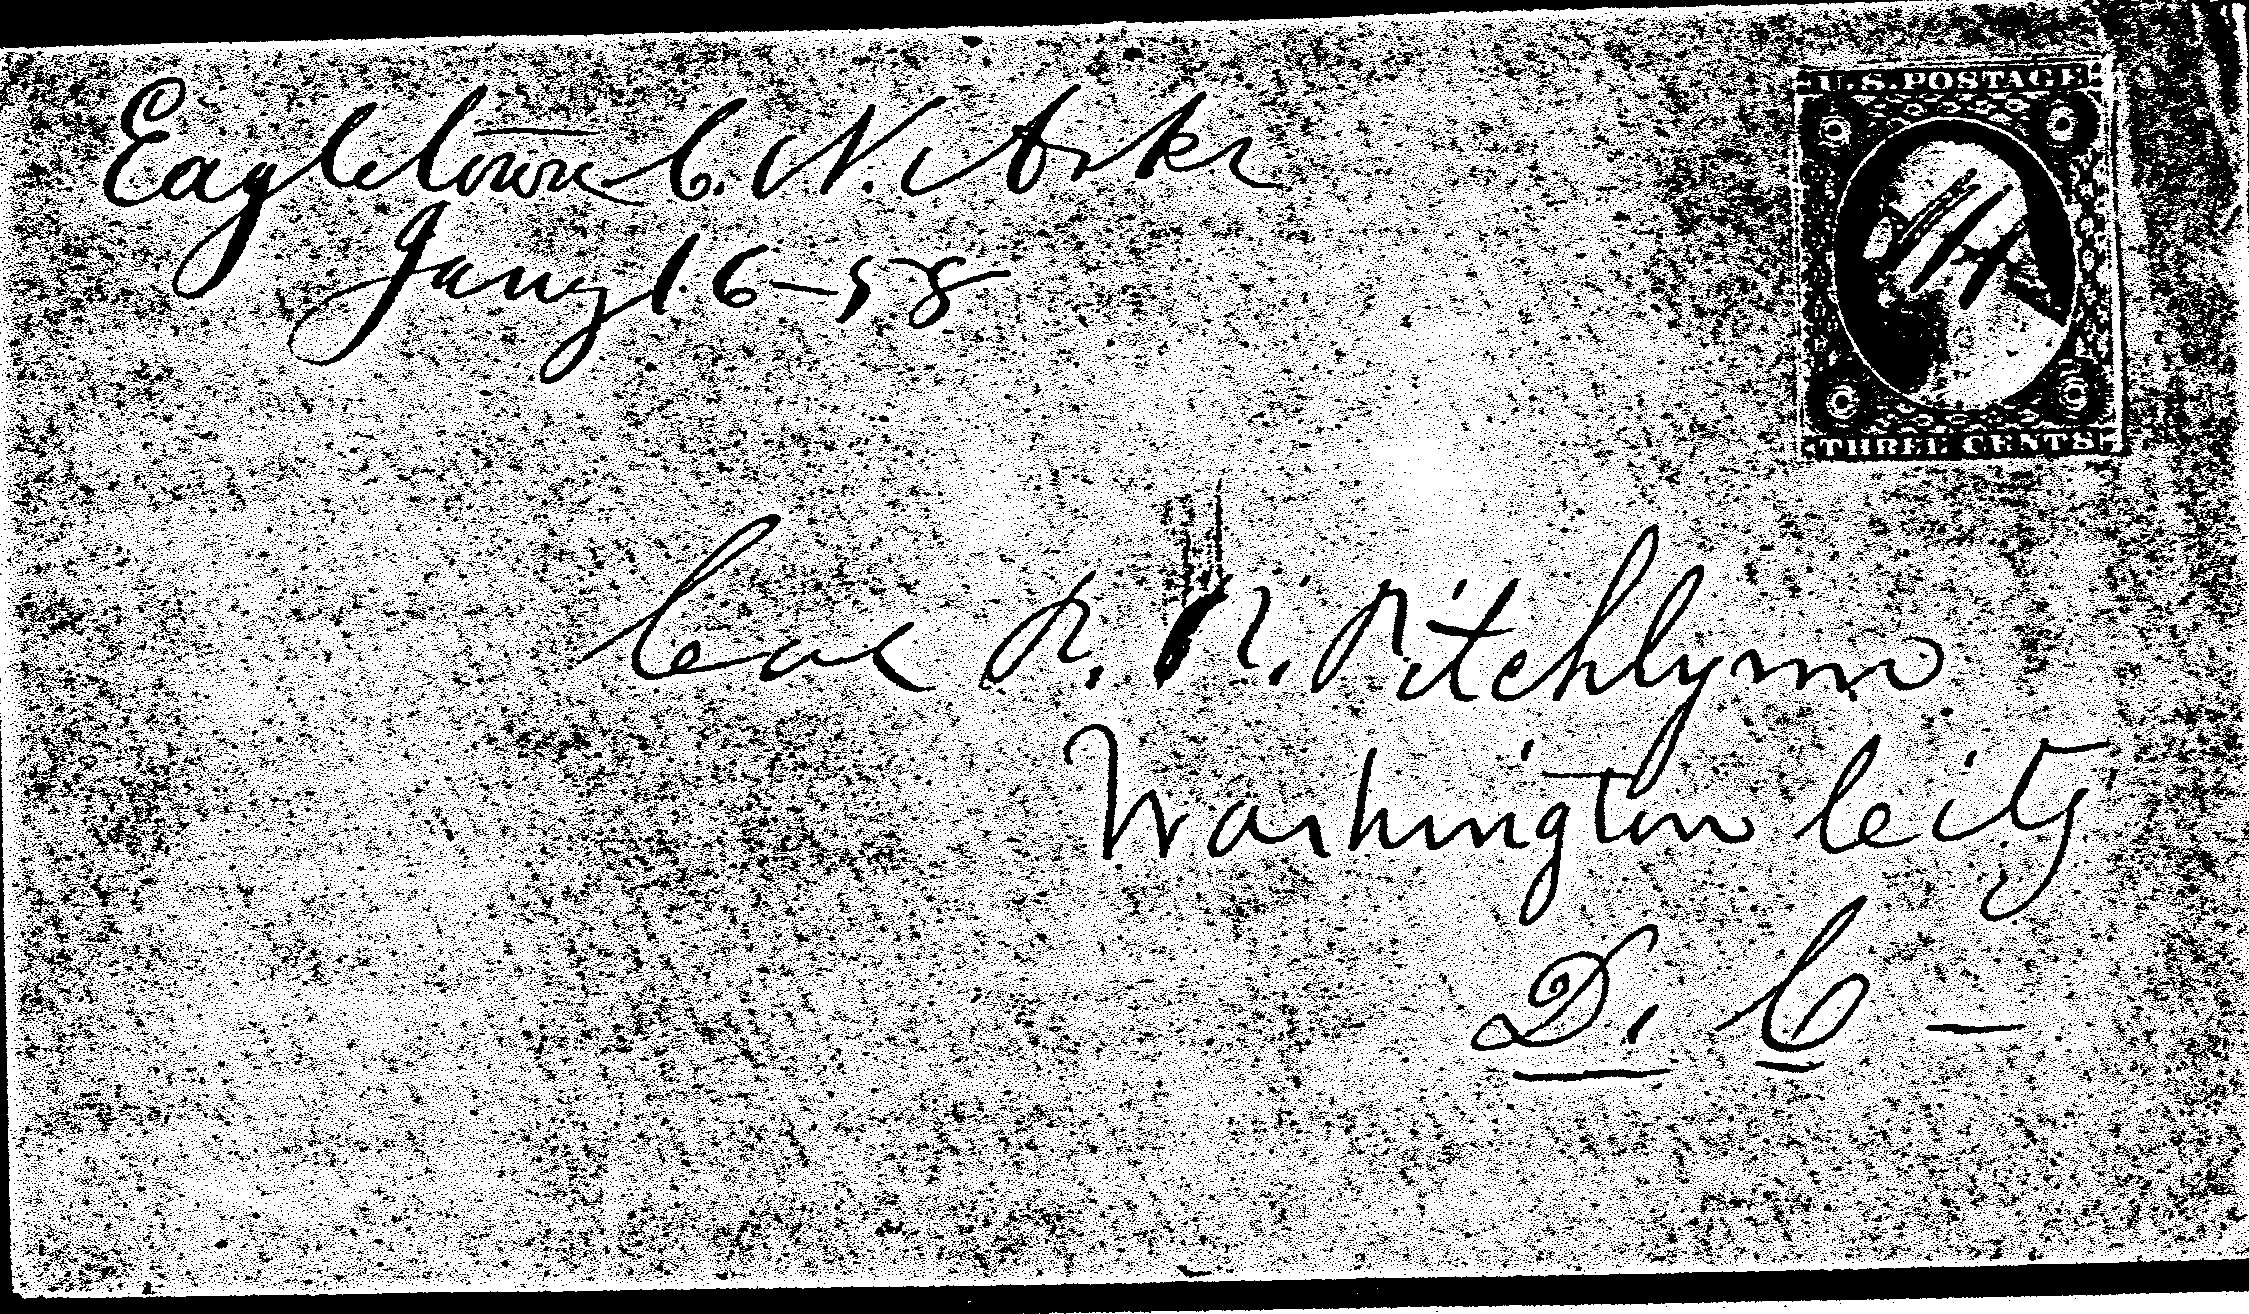 Eagletown C. N. Arks
Jany 16 – 58
U.S. POSTAGE
THREE CENTS
Col P. P. Pitchlynn
Washington City
D. C –